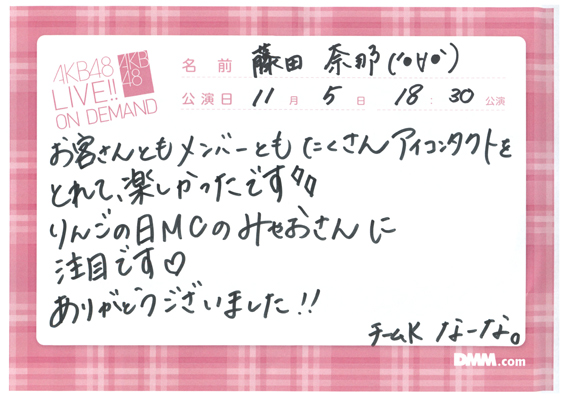 AKB48
LIVE!!
ON DEMAND
AKB
48
名前 藤田 奈那(*'∀'*)
公演日 11月 5日 18:30公演
お客さんともメンバーともたくさんアイコンタクトを
とれて、楽しかったです
りんごの日MCのみゃおさんに
注目です♡
ありがとうございました!!
チームK なーな。
DMM.com